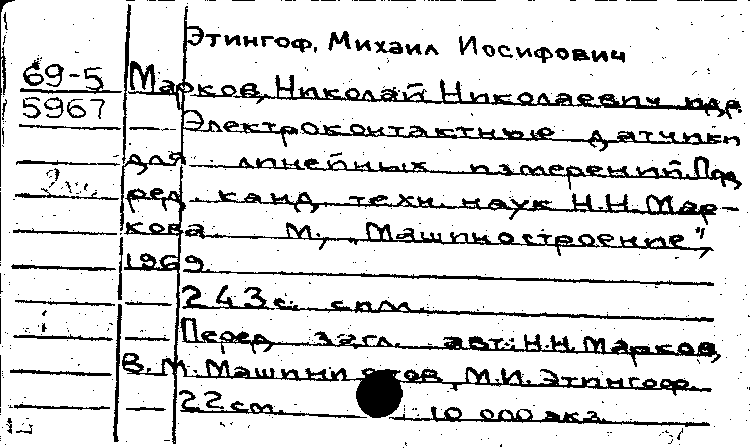 Этингоф, Михаил Иосифович
69-5 Марков, Николай Николаевич и др
5967 Электроконтактные датчики
для линейных измерений. Под
ред. канд. техн. наук Н.Н. Мар-
кова М., „Машиностроение",
1969
243 с. с илл.
Перед загл. авт.: Н.Н. Марков,
В.М. Машинистов, М.И. Этингоф.
22 см. 10 000 экз.